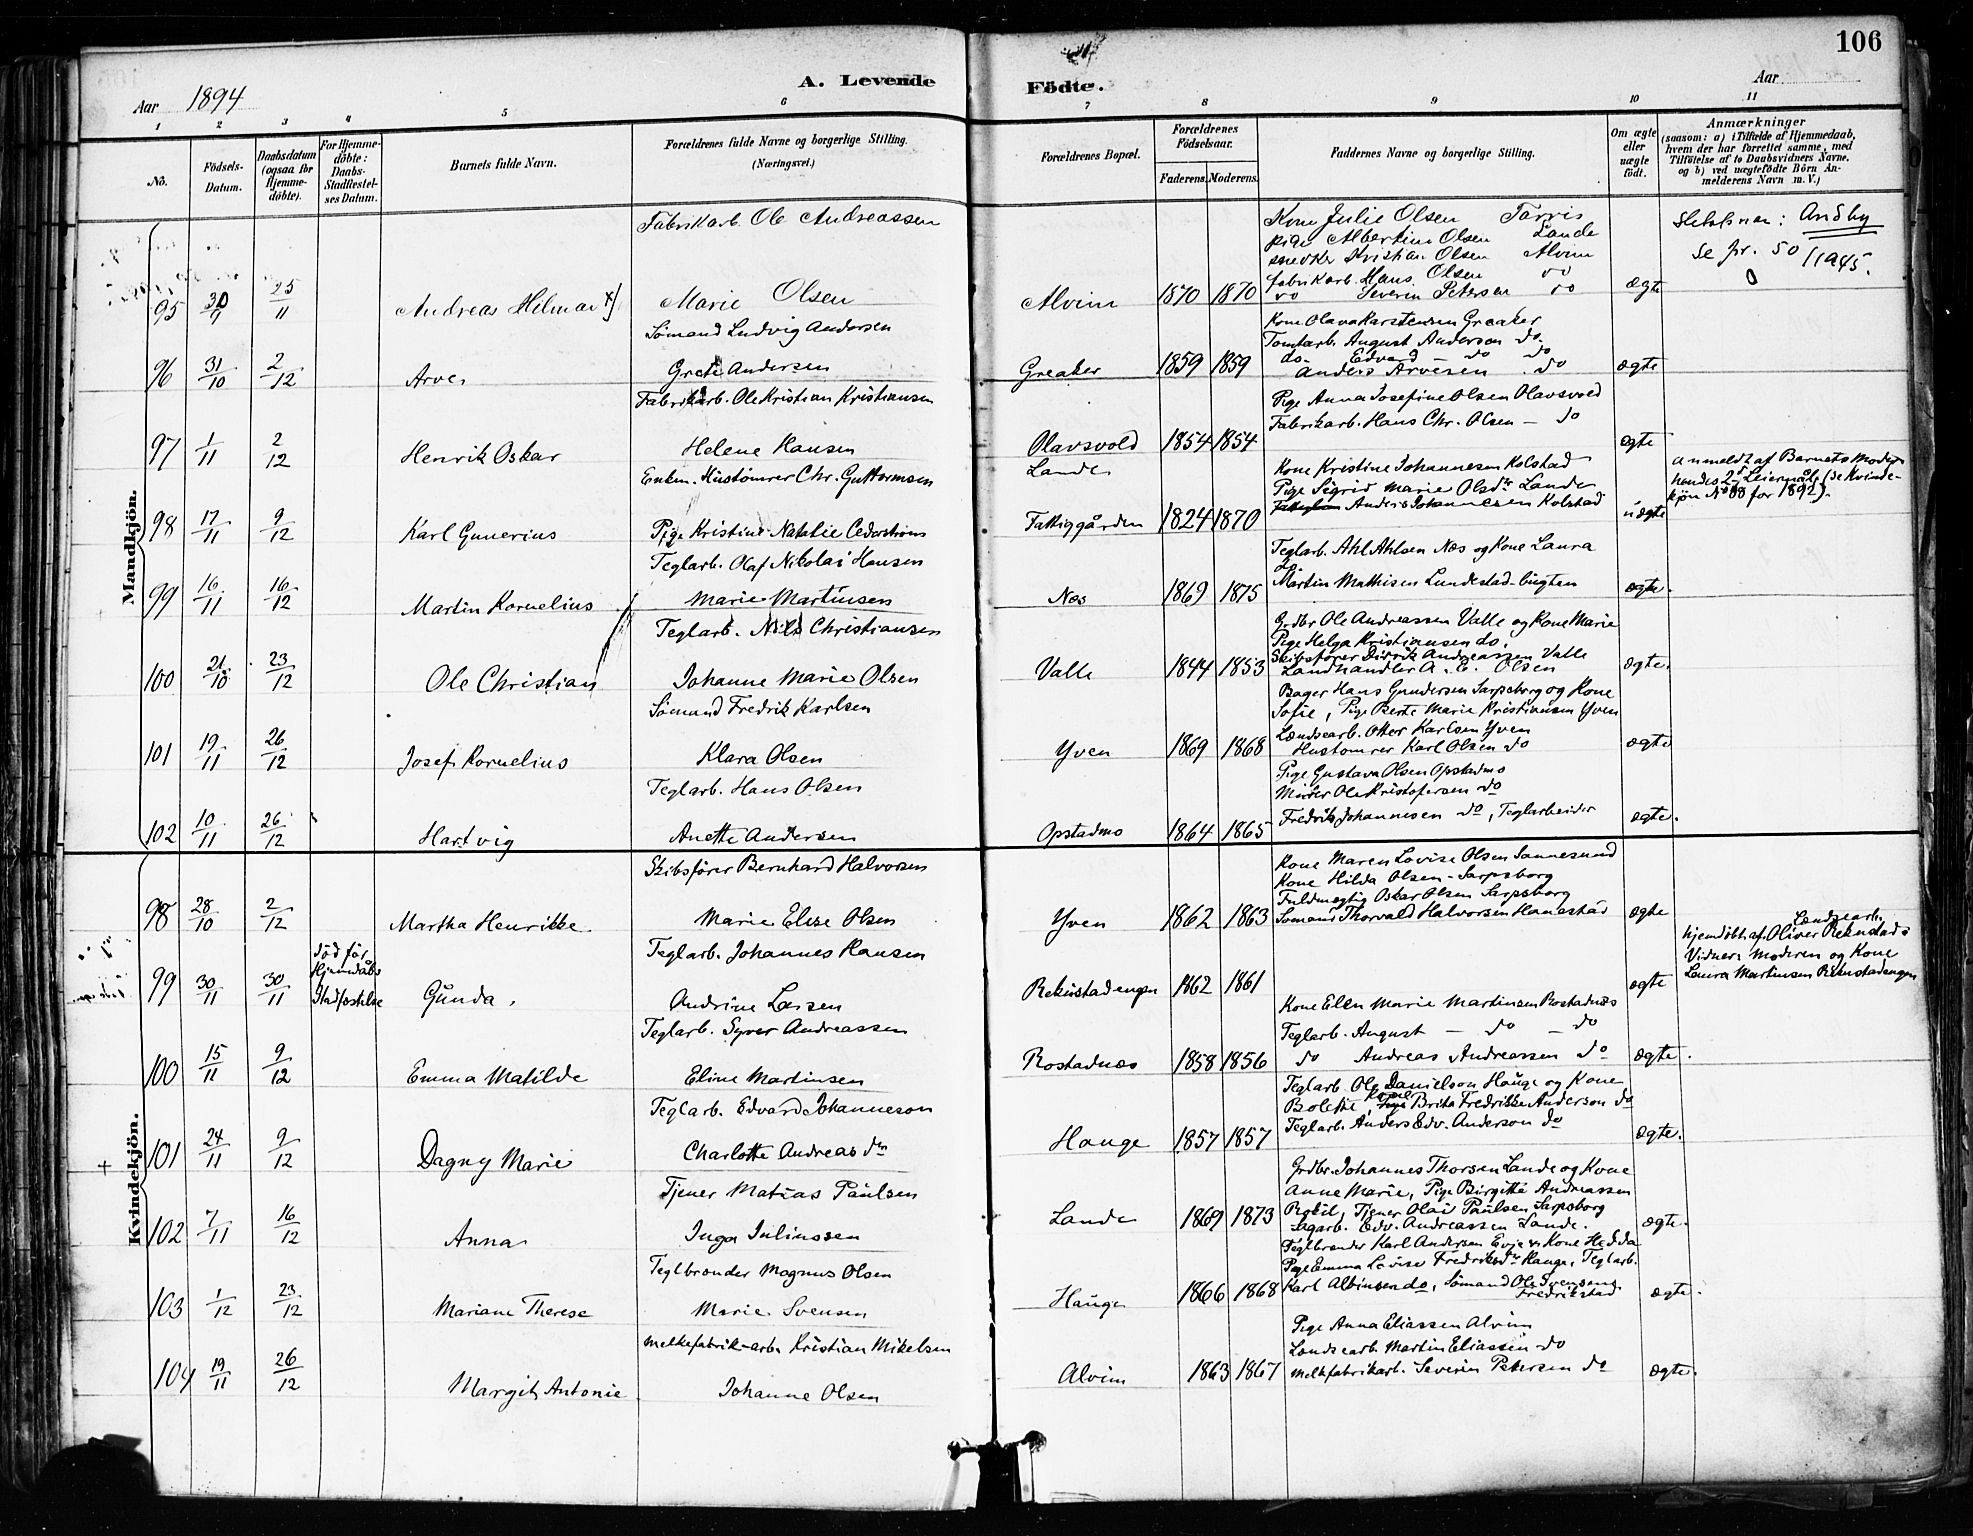 106
A. Levende Födte.
Aar 1894
Aar
1 2 3 4 5 6 7 8 9 10 11
No.
Födsels-Datum.
Daabsdatum (ogsaa for Hjemmedöbte).
For Hjemmedöbte: Daabs-Stadfæstelses Datum.
Barnets fulde Navn.
Forældrenes fulde Navne og borgerlige Stilling. (Næringsvei.)
Forældrenes Bopæl.
Forældrenes Födselsaar.
Faderens. Moderens.
Faddernes Navne og borgerlige Stilling.
Om ægte eller uægte födt.
Anmærkninger
(saasom: a) i Tilfælde af Hjemmedaab, hvem der har forrettet samme, med Tilföielse af to Daabsvidners Navne, og b) ved uægtefödte Börn Anmelderens Navn m. V.)
Mandkjön.
Fabrikarb. Ole Andreassen
Kone Julie Olsen Torris
pige Albertine Olsen Lande
snedker Kristian Olsen Alvim
fabrikarb. Hans Olsen do
95 30/9 25/11 Andreas Hilmar x) Marie Olsen Alvim 1870 1870 do Severin Petersen do ægte
Slektsnavn: Andby
Se jr. 50/1945.
Sømand Ludvig Andersen
Kone Olava Karstensen Greaker
Tomtarb. August Andersen do.
do. Edvard — do do
96 31/10 2/12 Arve Grete Andersen Greaker 1859 1859 Anders Arvesen do ægte
Fabrikarb. Ole Kristian Kristiansen
Pige Anna Josefine Olsen Olavsvold
Fabrikarb. Hans Chr. Olsen — do
97 1/11 2/12 Henrik Oskar Helene Hansen Olavsvold 1854 1854 ægte
Enkem. Hustømrer Chr. Guttormsen
Lande
Kone Kristine Johannesen Kolstad
Pige Sigrid Marie Olsdtr Lande
98 17/11 9/12 Karl Gunerius Pige Kristine Natalie Cedarstrøm Fattiggården 1824 1870 Anders Johannesen Kolstad uægte
anmeldt af Barnets Moder
hendes 2det Leiermål (se Kvinde-
kjøn No 88 for 1892).
Teglarb. Olaf Nikolai Hansen
Teglarb. Ahl Ahlsen Næs og Kone Laura
do
99 16/11 16/12 Martin Kornelius Marie Martinsen Næs 1869 1875 Martin Mathisen Lundestad-bugten ægte.
Teglarb. Nils Christiansen
Grdbr Ole Andreassen Valle og Kone Marie
Pige Helga Kristiansen do.
Skibsfører Didrik Andreassen Valle
100 21/10 23/12 Ole Christian Johanne Marie Olsen Valle 1844 1853 Landhandler A. E. Olsen ægte.
Sømand Fredrik Karlsen
Bager Hans Gundersen Sarpsborg og Kone
Sofie, Pige Berte Marie Kristiansen Yven
Lændsearb. Otter Karlsen Yven
101 19/11 26/12 Josef Kornelius Klara Olsen Yven 1869 1868 Hustømrer Karl Olsen do ægte
Teglarb. Hans Olsen
Pige Gustava Olsen Opstadmo
Ole Kristofersen do
102 10/11 26/12 Hartvig Anette Andersen Opstadmo 1864 1865 Fredrik Johannesen do, Teglarbeider ægte.
Kvindekjön.
Skibsfører Bernhard Halvorsen
Kone Maren Lovise Olsen Sannesund
Kone Hilda Olsen - Sarpsborg
Fuldmægtig Oskar Olsen Sarpsborg
98 28/10 2/12 Martha Henrikke Marie Elise Olsen Yven 1862 1863 Sømand Thorvald Halvorsen Hanestad ægte
Teglarb. Johannes Hansen
99 30/11 30/11 død før Hjemdåbs Stadfæstelse Gunda. Andrine Larsen Rekustadengen 1862 1861 ægte
Lændsearb.
hjemdøbt af Oliver Rekustad
Vidner: Moderen og Kone
Laura Martinsen Rekustadengen
Teglarb. Syver Andreassen
Kone Ellen Marie Martinsen Rostadnæs
Teglarb. August — do — do
100 15/11 9/12 Emma Matilde Eline Martinsen Rostadnæs 1858 1856 do Andreas Andreassen do ægte.
Teglarb. Edvard Johannesen
Teglarb Ole Danielsen Hauge og Kone
Bolette, Kone Brita Fredrikke Anderson do
101 24/11 9/12 Dagny Marie Charlotte Andreasdtr Hauge 1857 1857 Teglarb. Anders Edv. Anderson do ægte.
Tjener Matias Paulsen
Grdbr. Johannes Thorsen Lande og Kone
Anne Marie, Pige Birgitte Andreassen
Tjener Olai Paulsen Sarpsborg
102 7/11 16/12 Anna Inga Juliussen Lande 1869 1873 Sagarb. Edv. Andreassen Lande. ægte.
Teglbrænder Magnus Olsen
Teglbrænder Karl Andersen Evje og Kone Hedda
Pige Emma Lovise Fredriksdtr Hauge, Teglarb.
103 1/12 23/12 Mariane Therese Marie Svensen Hauge 1866 1868 Karl Albinsen do, Sømand Ole Svensen Fredrikstad ægte.
Melkefabrik-arb. Kristian Mikelsen
Pige Anna Eliassen Alvim
Landsearb. Martin Eliassen do
104 19/11 26/12 Margith Antonie Johanne Olsen Alvim 1863 1867 Melkfabrikarb. Severin Petersen do ægte.